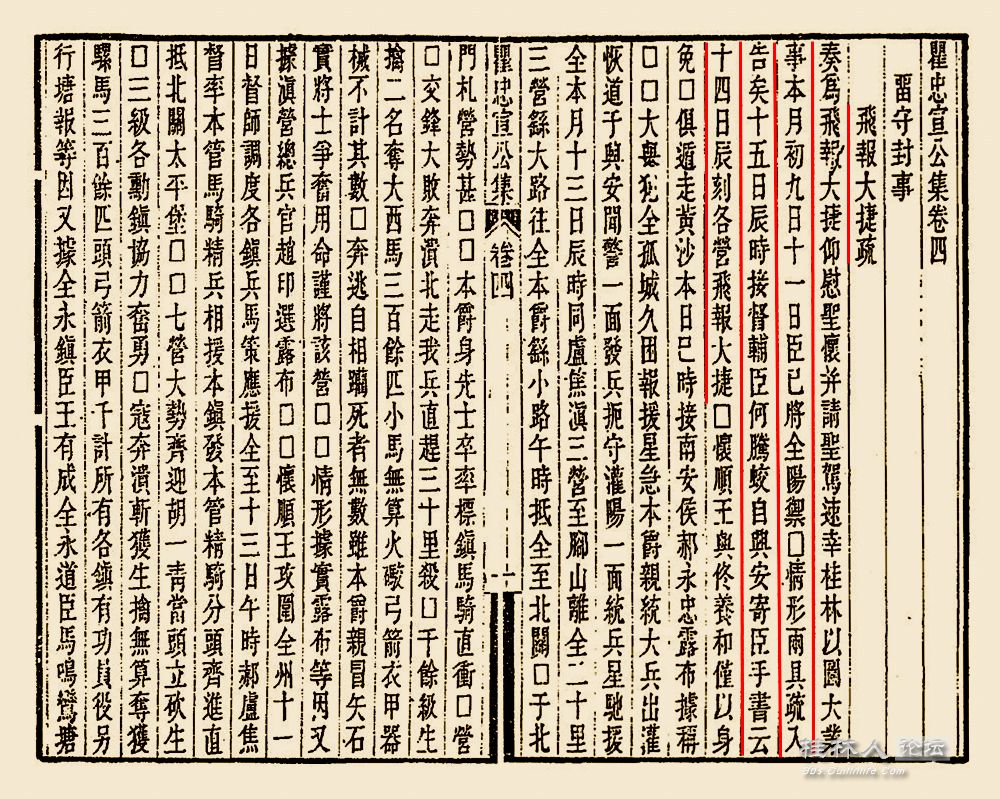 瞿忠宣公集卷四
畱守封事
飛報大捷疏
奏爲飛報大捷仰慰聖懷并請聖駕速幸桂林以圖大業
事本月初九日十一日臣已將全陽禦□情形兩具疏入
告矣十五日辰時接督輔臣何騰蛟自與安寄臣手書云
十四日辰刻各營飛報大捷□懷順王與佟養和僅以身
免□俱遁走黃沙本日巳時接南安侯郝永忠露布據稱
□□大舉犯全孤城久困報援星急本爵親統大兵出灌
恢道于與安聞警一面發兵扼守灌陽一面統兵星馳援
全本月十三日辰時同盧焦滇三營至腳山離全二十里
三營繇大路往全本爵繇小路午時抵全至北關□于北
瞿忠宣公集
卷四
一
門札營勢甚□□本爵身先士卒率標鎭馬騎直衝□營
□交鋒大敗奔潰北走我兵直趕三十里殺□千餘級生
擒二名奪大西馬三百餘匹小馬無算火礮弓箭衣甲器
械不計其數□奔逃自相躪死者無數雖本爵親冒矢石
實將士爭奮用命謹將該營□□情形據實露布等因又
據滇營總兵官趙印選露布□□懷順王攻圍全州十一
日督師調度各鎭兵馬策應援全至十三日午時郝盧焦
督率本管馬騎精兵相援本鎭發本管精騎分頭齊進直
抵北關太平堡□□七營大勢齊迎胡一靑當頭立砍生
□三級各勳鎭協力奮勇□寇奔潰斬獲生擒無算奪獲
騾馬三百餘匹頭弓箭衣甲千計所有各鎭有功員役另
行塘報等因又據全永鎭臣王有成全永道臣馬鳴鸞塘
桂林人 论坛
bbs.Guilinlife.Com